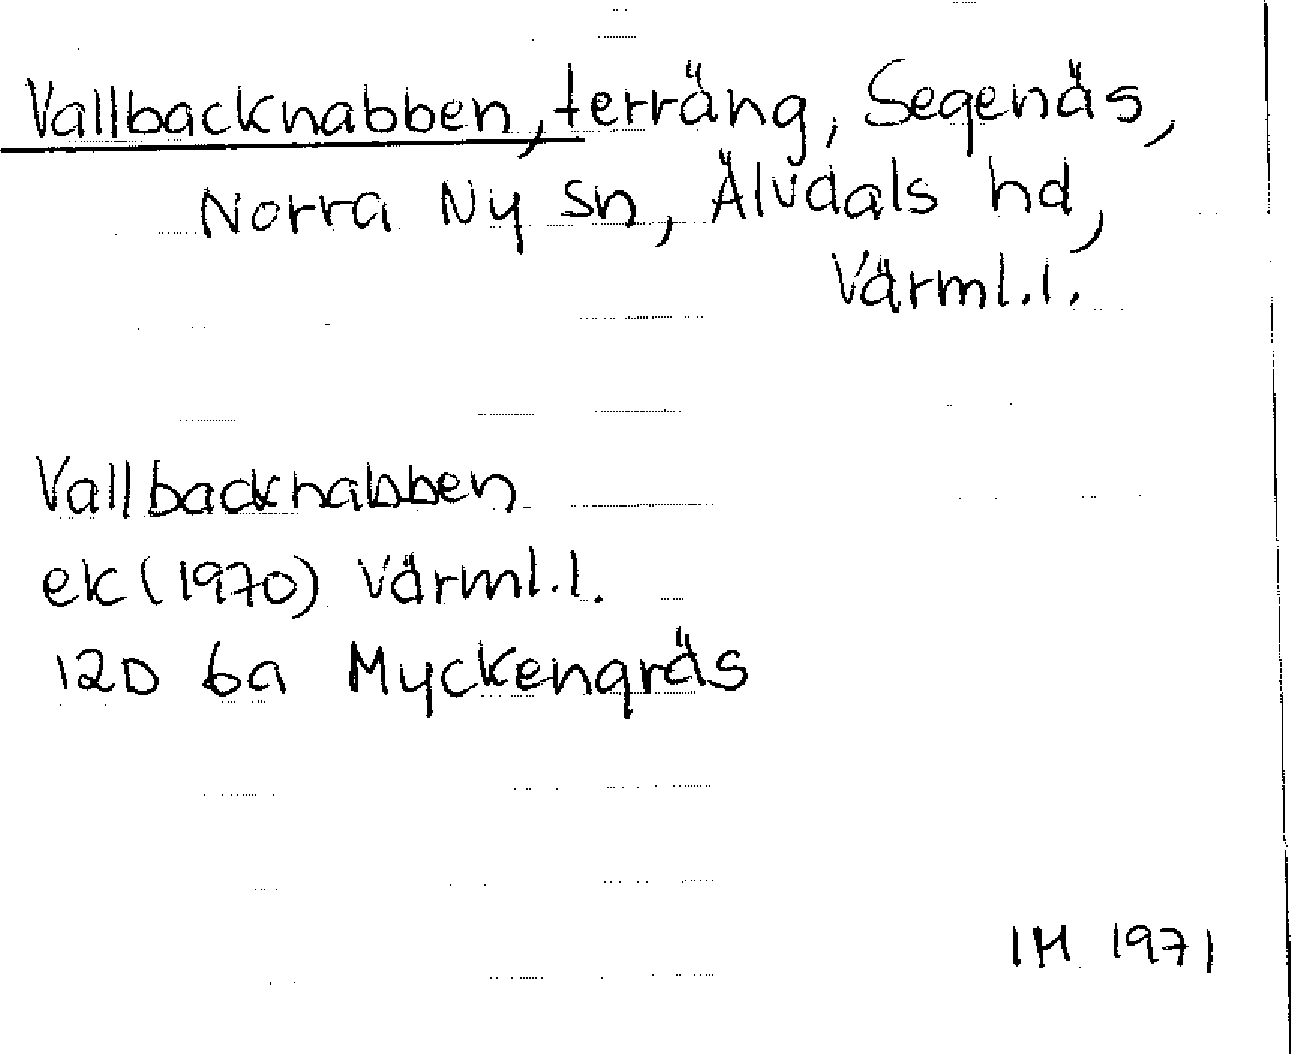 Vallbacknabben, terräng, Segenäs,
Norra Ny sn, Älvdals hd,
Värml.l.
Vallbacknabben
ek (1970) Värml.l.
12D 6a Myckengräs
IM 1971